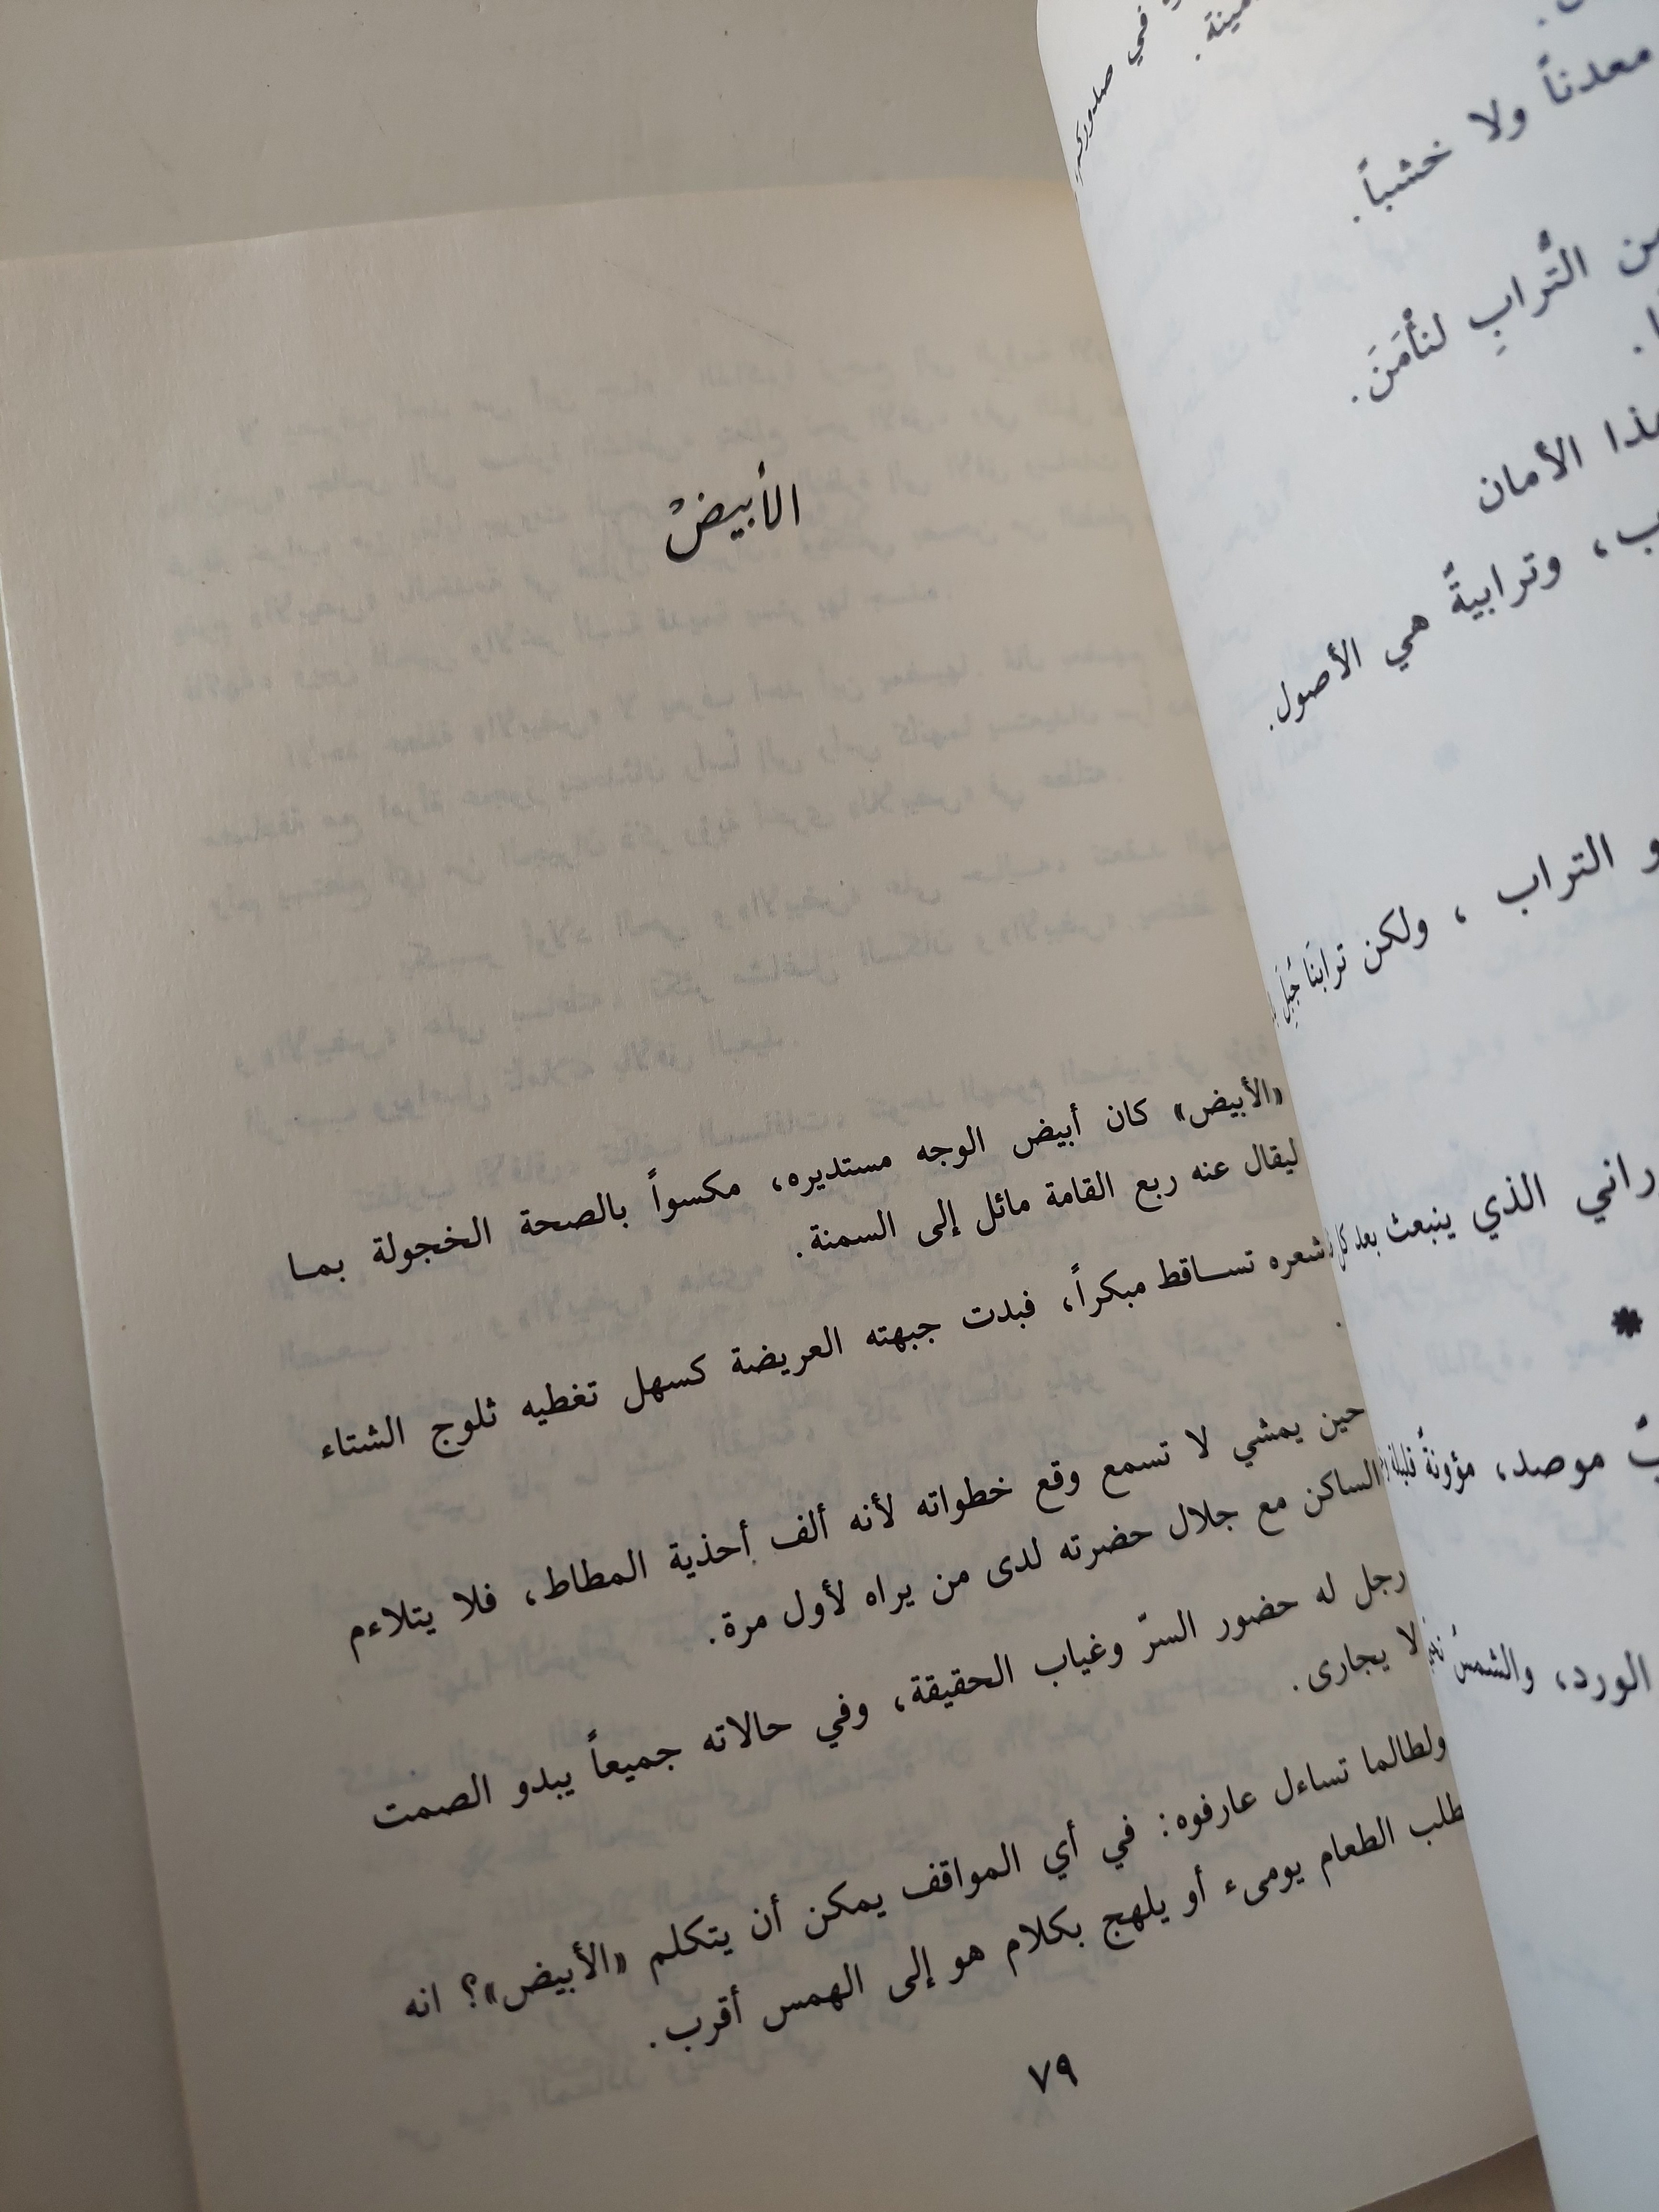 في
معدناً ولا خشباً.
التُّرابِ لنأْمَنَ.
الأمان
وترابيةٌ هي الأصول.
التراب ، ولكن ترابنَا
الذي ينبعث بعد كل
*
موصد، مؤونةٌ
الورد، والشمسُ
الأبيضْ
«الأبيض» كان أبيض الوجه مستديره، مكسواً بالصحة الخجولة بما
ليقال عنه ربع القامة مائل إلى السمنة.
شعره تساقط مبكراً، فبدت جبهته العريضة كسهل تغطيه ثلوج الشتاء
حين يمشي لا تسمع وقع خطواته لأنه ألف أحذية المطاط، فلا يتلاءم
الساكن مع جلال حضرته لدى من يراه لأول مرة.
رجل له حضور السرّ وغياب الحقيقة، وفي حالاته جميعاً يبدو الصمت
لا يجارى.
ولطالما تساءل عارفوه: في أي المواقف يمكن أن يتكلم «الأبيض»؟ انه
طلب الطعام يومىء أو يلهج بكلام هو إلى الهمس أقرب.
٧٩